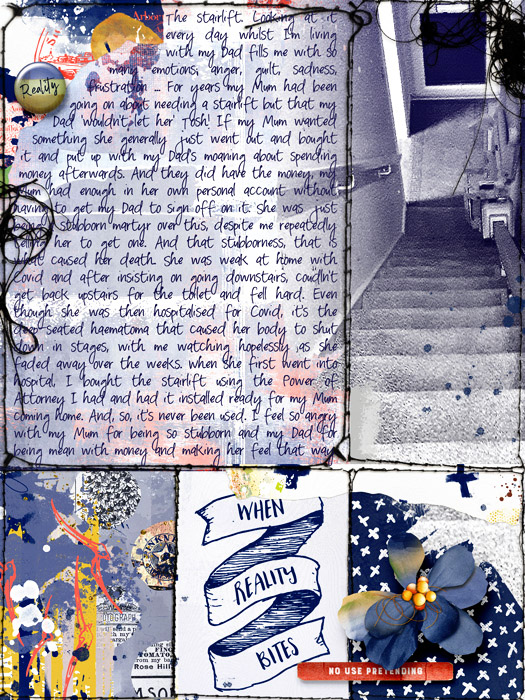 The stairlift. Looking at it
every day whilst I'm living
with my Dad fills me with so
many emotions, anger, guilt, sadness,
frustration ... For years my Mum had been
going on about needing a stairlift but that my
Dad 'wouldn't let her'. Tosh! If my Mum wanted
something she generally just went out and bought
it and put up with my Dad's moaning about spending
money afterwards. And they did have the money, my
Mum had enough in her own personal account without
having to get my Dad to sign off on it. She was just
being a stubborn martyr over this, despite me repeatedly
telling her to get one. And that stubborness, that is
what caused her death. She was weak at home with
Covid and after insisting on going downstairs, couldn't
get back upstairs for the toilet and fell hard. Even
though she was then hospitalised for Covid, it's the
deep-seated haematoma that caused her body to shut
down in stages, with me watching hopelessly as she
faded away over the weeks. When she first went into
hospital, I bought the stairlift using the Power of
Attorney I had and had it installed ready for my Mum
coming home. And, so, it's never been used. I feel so angry
with my Mum for being so stubborn and my Dad for
being mean with money and making her feel that way
Reality
WHEN
REALITY
BITES
NO USE PRETENDING
TOMATO
from my ba
Rose Hill